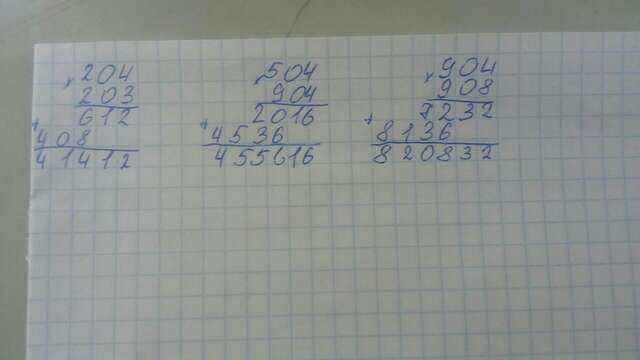 × 204
203
612
+ 408
41412
× 504
904
2016
+ 4536
455616
× 904
908
7232
+ 8136
820832